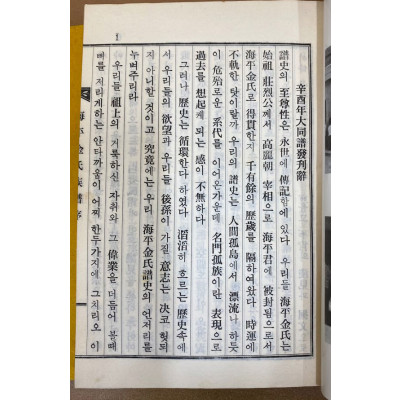 辛酉年大同譜發刊辭
譜史의 至尊性은 永世에 傳記함에 있다 우리들 海平金氏는
始祖 莊烈公께서 高麗朝 宰相으로 海平君에 被封됨으로서
海平金氏로 得貫한지 千有餘의 歷歲를 隔하여왔다 時運에
不軌한 탓이랄까 우리의 譜史는 人間孤島에서 漂流나 하듯
이 危殆로운 系代를 이어온가운데 名門孤族이란 表現으로
過去를 想起케 되는 感이 不無하다
그러나 歷史는 循環한다 하였다 滔滔히 흐르는 歷史속에
서 우리들의 欲望과 우리들 後孫이 가질 意志는 決코 헛되
지 아니할 것이고 究竟에는 우리 海平金氏譜史의 언저리를
누벼주리라
우리들 祖上의 거룩하신 자취와 그 偉業을 더듬어 볼때
뼈를 저리게하는 안타까움이 어찌 한두가지에 그치리오 이
海平金氏族譜序
1